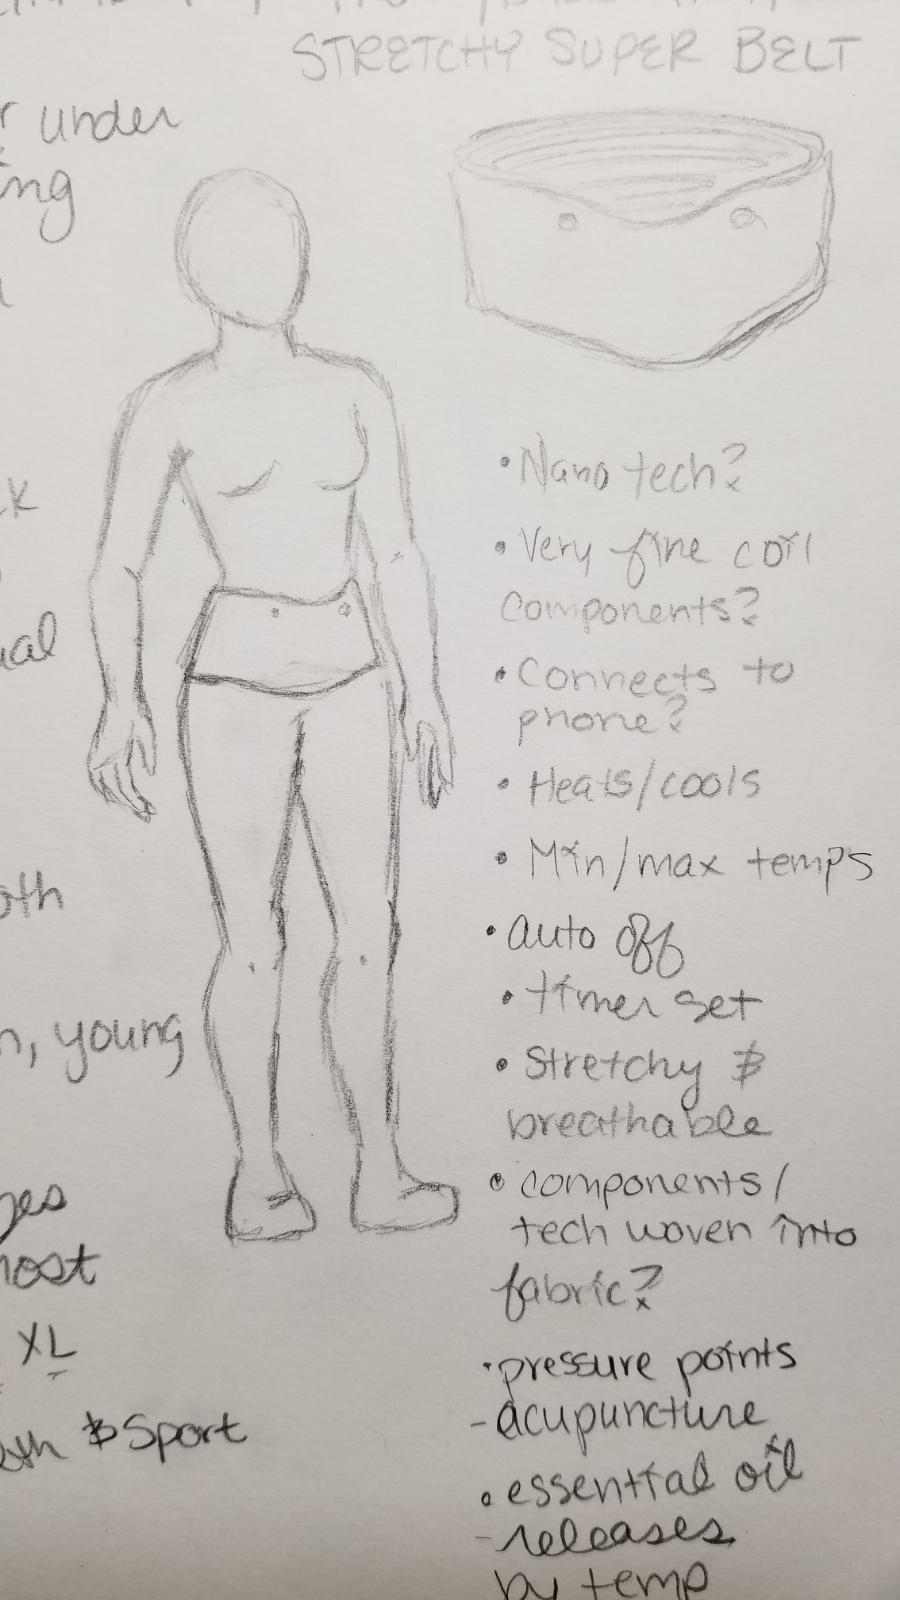 STRETCHY SUPER BELT
under
• Nano tech?
• Very fine coil
components?
• Connects to
phone?
• Heats/cools
• Min/max temps
• auto off
• timer set
• Stretchy &
breathable
• components/
tech woven into
fabric?
• pressure points
- acupuncture
• essential oil
- releases
by temp
young
XL
& Sport